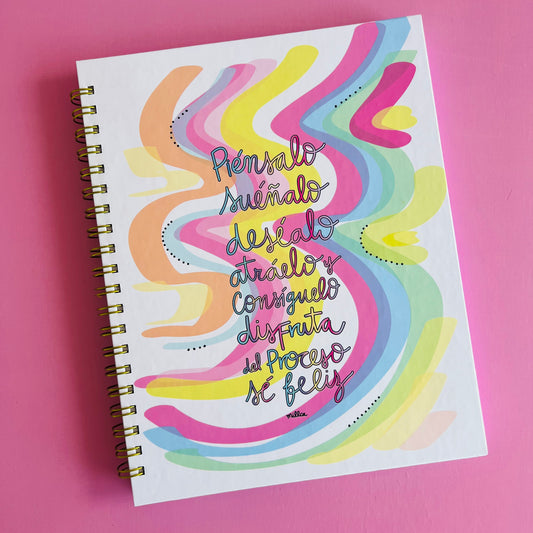 Piénsalo
suéñalo
deséalo
atráelo y
Consíguelo
disFruta
del Proceso
sé feliz